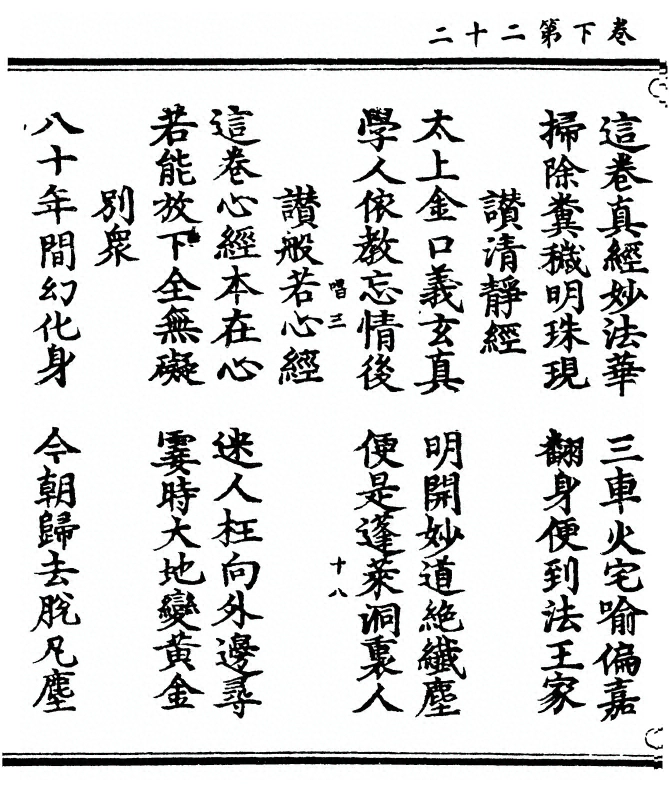 卷下第二十二
這卷真經妙法華　三車火宅喻偏嘉
掃除糞穢明珠現　翻身便到法王家
讃清靜經
太上金口義玄真　明開妙道絶纖塵
學人依教忘情後　便是蓬萊洞裏人
唱三　十八
讃般若心經
這卷心經本在心　迷人枉向外邊尋
若能放下全無礙　霎時大地變黃金
別衆
八十年間幻化身　今朝歸去脫凡塵